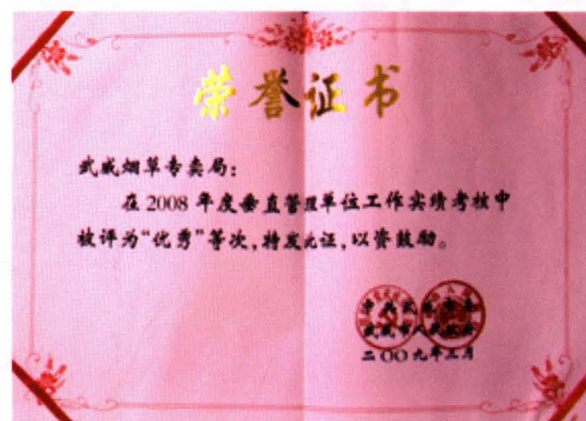 荣誉证书
武威烟草专卖局：
在 2008 年度垂直管理单位工作实绩考核中
被评为“优秀”等次，特发此证，以资鼓励。
中共武威市委
武威市人民政府
二〇〇九年三月